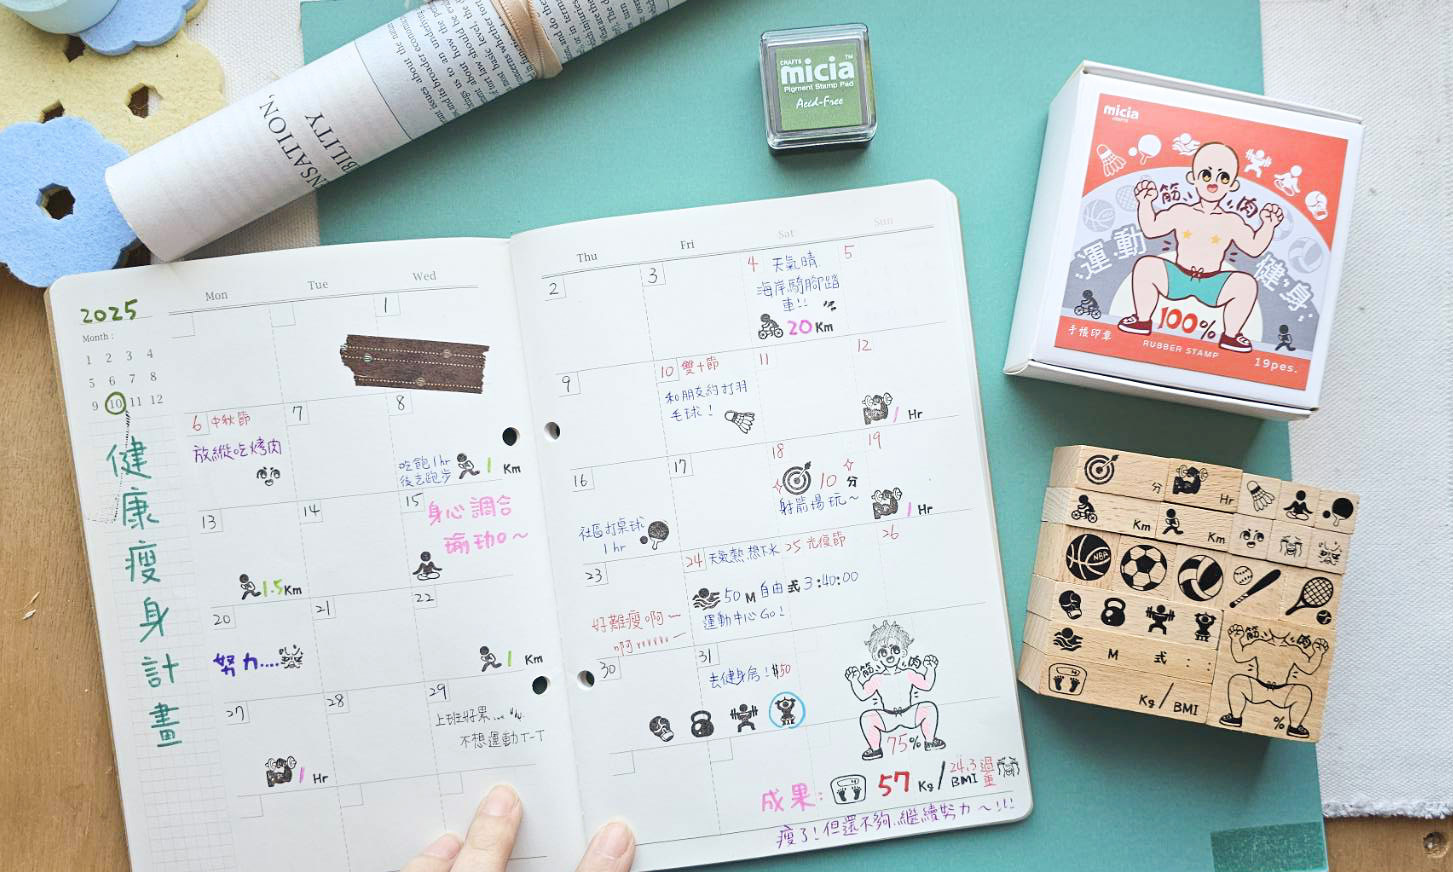 NSATION,
BILITY
CRAFTS
micia™
Pigment Stamp Pad
Acid-Free
micia
CRAFTS
筋肉
運動健身
100%
手帳印章
RUBBER STAMP
19pes.
2025
Month :
1 2 3 4
5 6 7 8
9 10 11 12
健康瘦身計畫
Mon
Tue
Wed
Thu
Fri
Sat
Sun
1
2
3
4 天氣晴
海岸騎腳踏
車!!
20 Km
5
6 中秋節
放縱吃烤肉
7
8
吃飽1hr
後去跑步
1 Km
9
10 雙十節
和朋友約打羽
毛球!
11
12
1 Hr
13
1.5 Km
14
15 身心調合
瑜珈~
16
社區打桌球
1 hr
17
18
10 分
射箭場玩~
19
1 Hr
20
努力....
21
22
1 Km
23
好難瘦啊~
24 天氣熱想下水
50 M 自由式 3:40:00
運動中心Go!
25 光復節
26
27
1 Hr
28
29
上班好累...
不想運動T-T
30
31
去健身房! $50
筋肉
75%
成果: 57 Kg / BMI
24.3 過重
瘦了!但還不夠,繼續努力~!!!
分
Hr
Km
Km
NBA
M 式 : :
Kg / BMI
筋肉
%